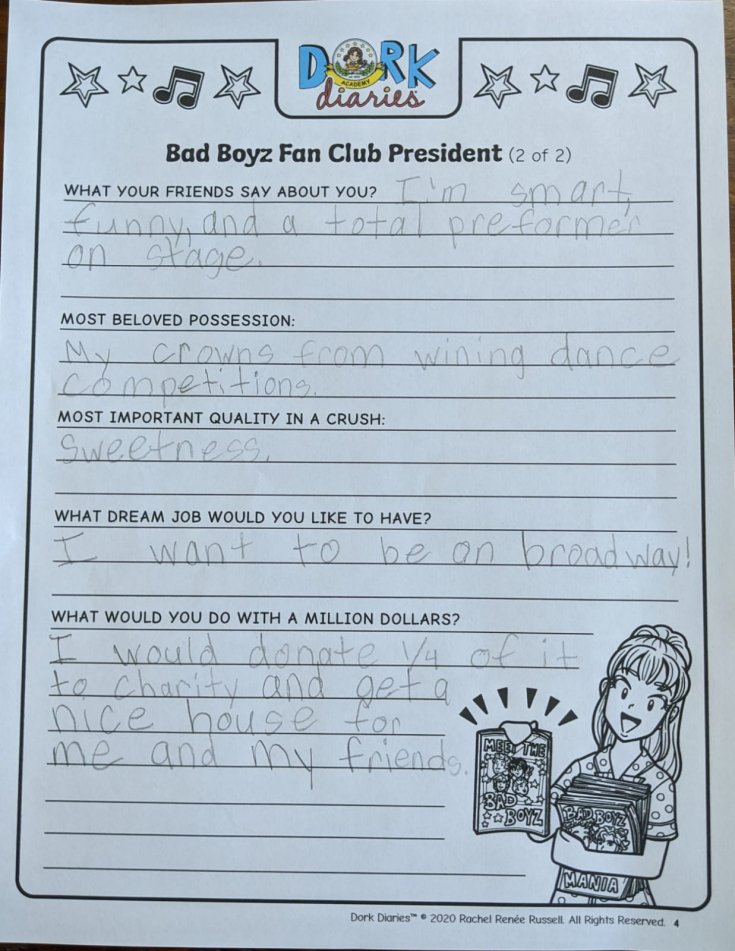 DORK
ACADEMY
diaries
Bad Boyz Fan Club President (2 of 2)
WHAT YOUR FRIENDS SAY ABOUT YOU? I'm smart,
funny, and a total preformer
on stage.
MOST BELOVED POSSESSION:
My crowns from wining dance
competitions.
MOST IMPORTANT QUALITY IN A CRUSH:
Sweetness.
WHAT DREAM JOB WOULD YOU LIKE TO HAVE?
I want to be on broadway!
WHAT WOULD YOU DO WITH A MILLION DOLLARS?
I would donate 1/4 of it
to charity and get a
nice house for
me and my friends.
MEET THE
BAD
BOYZ
BAD BOYZ
MANIA
Dork Diaries™ © 2020 Rachel Renée Russell. All Rights Reserved. 4